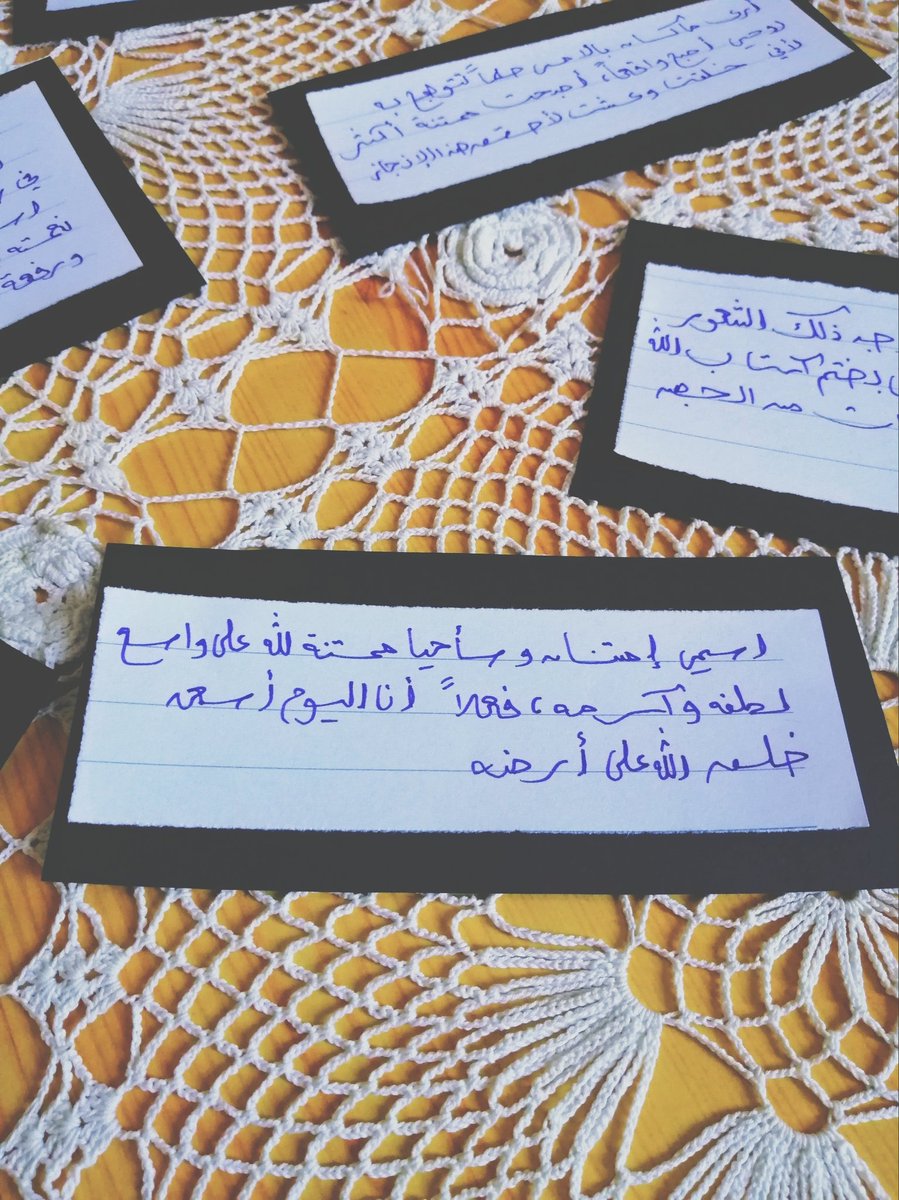 أرى ما كان بالأمس حلماً تتوهج به
روحي أصبح واقعاً، أصبحت ممتنة أكثر
لأني خلقت وعشت لأحقق هذا الإنجاز
في
نعمته
ورفعة
ذلك الشعور
بختم كتاب الله
من الحفظ
اسمي إمتنان وسأحيا ممتنة لله على واسع
لطفه وكرمه، فعلاً أنا اليوم أسعد
خلق الله على أرضه